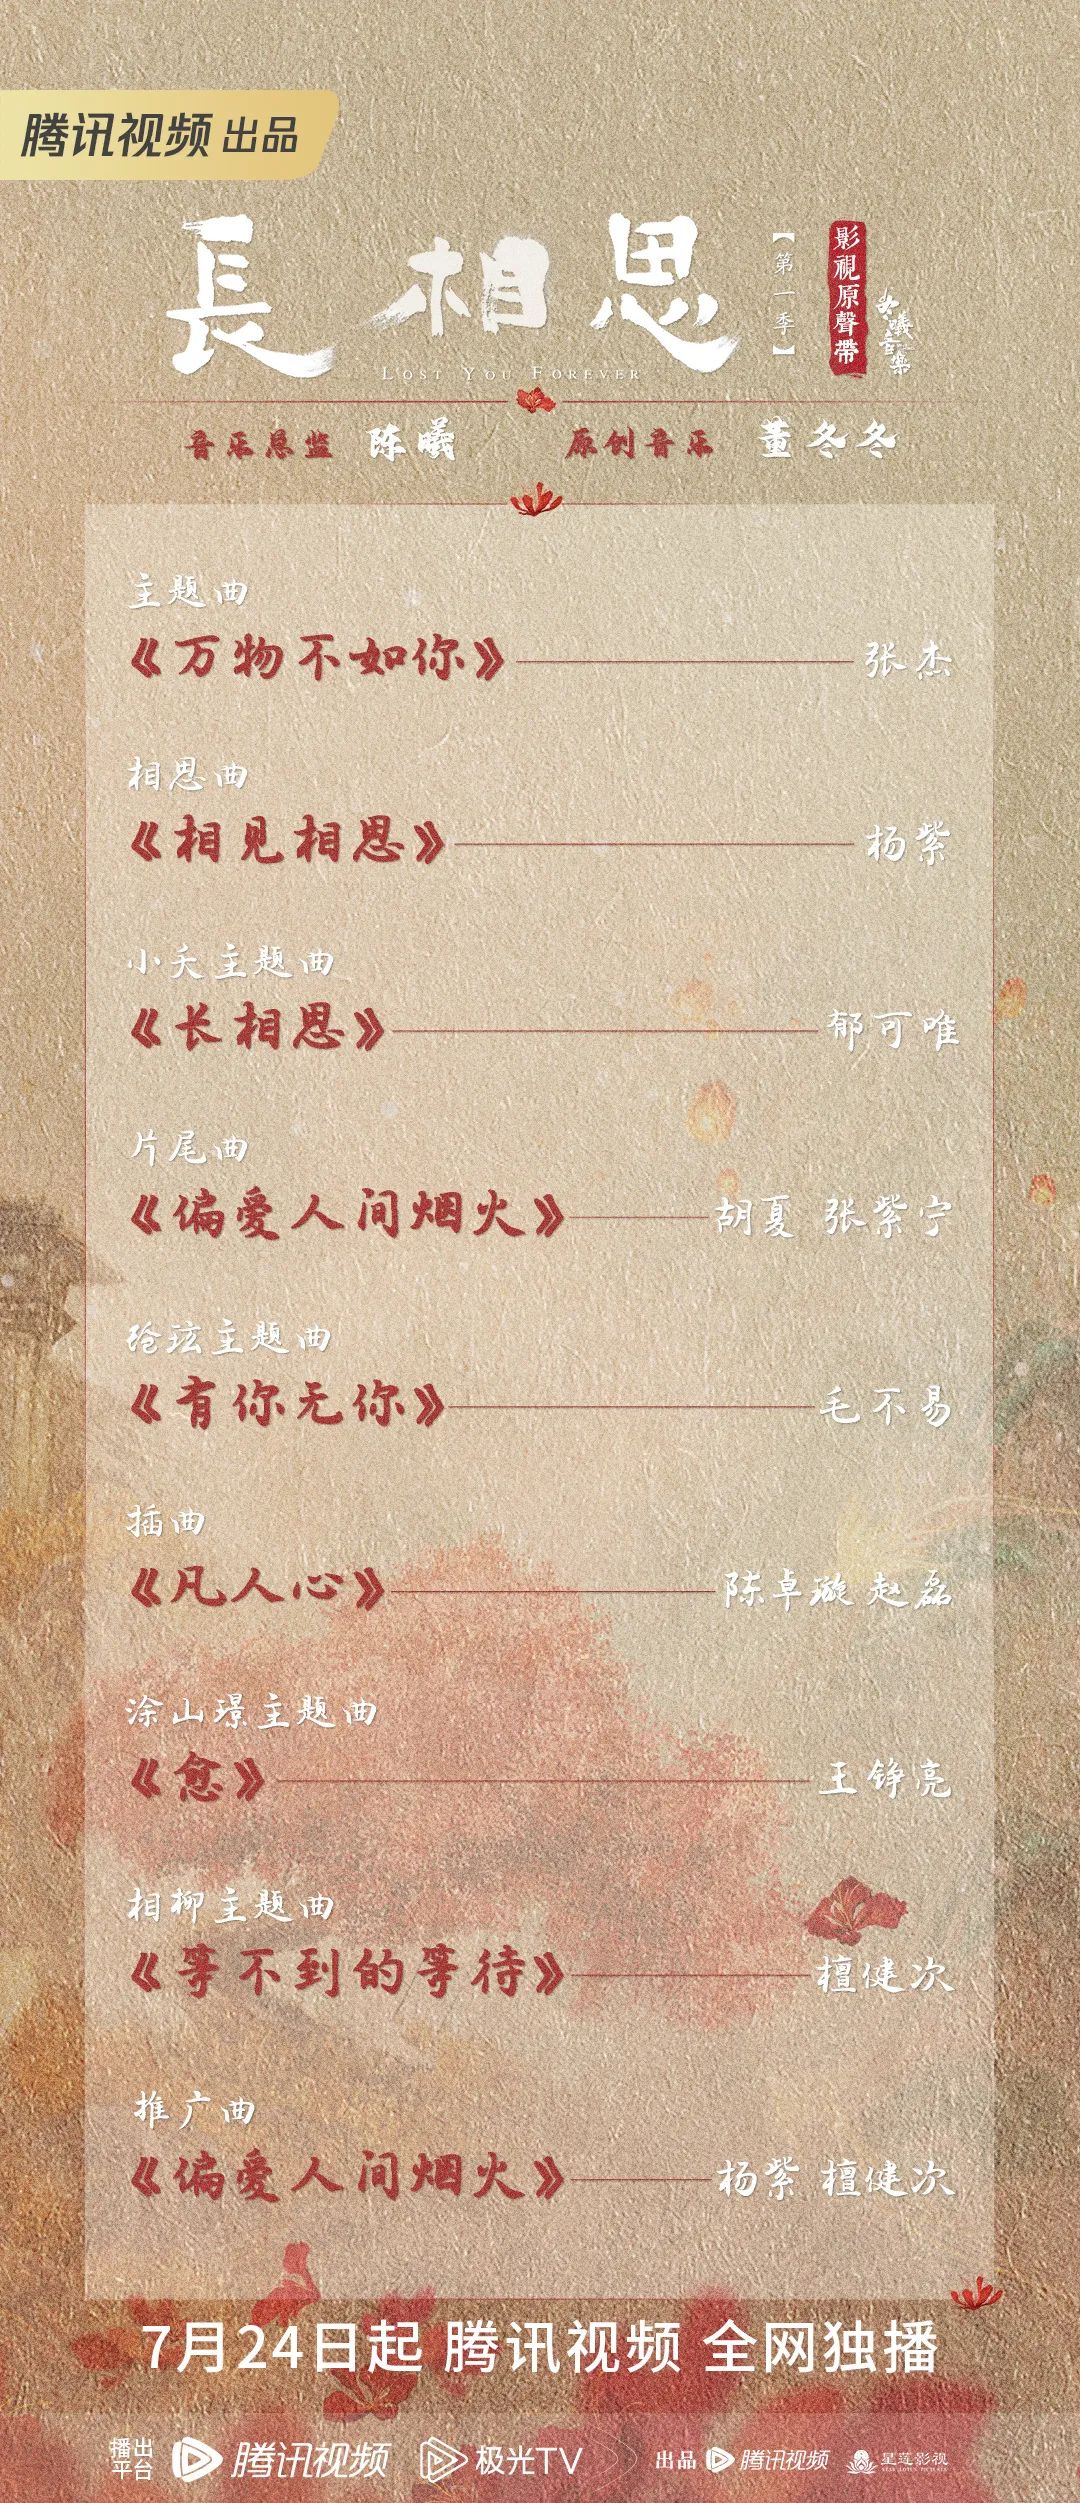 腾讯视频 出品
長相思
【第一季】
影視原聲帶
冬曦音樂
LOST YOU FOREVER
音乐总监 陈曦 原创音乐 董冬冬
主题曲
《万物不如你》 张杰
相思曲
《相见相思》 杨紫
小夭主题曲
《长相思》 郁可唯
片尾曲
《偏爱人间烟火》 胡夏 张紫宁
玱玹主题曲
《有你无你》 毛不易
插曲
《凡人心》 陈卓璇 赵磊
涂山璟主题曲
《愈》 王铮亮
相柳主题曲
《等不到的等待》 檀健次
推广曲
《偏爱人间烟火》 杨紫 檀健次
7月24日起 腾讯视频 全网独播
播出平台 腾讯视频 极光TV 出品 腾讯视频 星莲影视